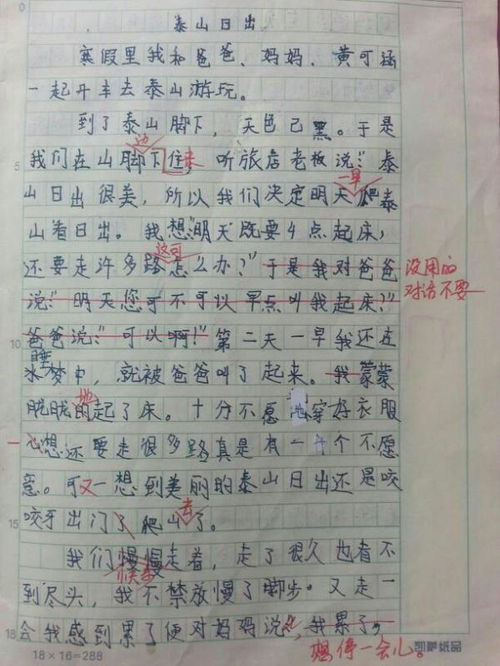 泰山日出
寒假里我和爸爸、妈妈、黄可涵
一起开车去泰山游玩。
到了泰山脚下，天色已黑。于是
边
我们在山脚下住来，听旅店老板说：“泰
一早
山日出很美，所以我们决定明天爬泰
山看日出。我想：“明天既要4点起床，
这可
还要走许多路怎么办？”于是我对爸爸
没用的
对话不要
说：“明天您可不可以早点叫我起床？”
爸爸说：“可以啊！”第二天一早我还在
睡
水梦中，就被爸爸叫了起来。我蒙蒙
地
胧胧的起了床。十分不愿地穿好衣服
心想还要走很多路真是有一千个不愿
意。可又一想到美丽的泰山日出还是咬
去
咬牙出门了爬山了。
我们慢慢走着，走了很久也看不
到尽头，我不禁放慢了脚步。又走一
会我感到累了便对妈妈说：“我累了，
想停一会儿。
5
10
15
18
18×16=288
凯萨纸品